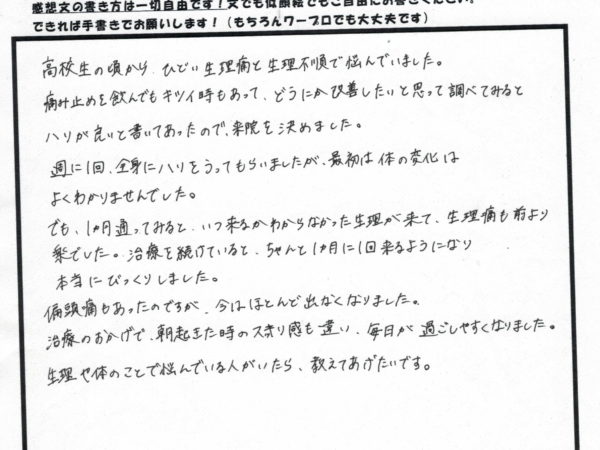 感想文の書き方は一切自由です！文でも似顔絵でもご自由にお書きください。
できれば手書きでお願いします！（もちろんワープロでも大丈夫です）
高校生の頃から、ひどい生理痛と生理不順で悩んでいました。
痛み止めを飲んでもキツイ時もあって、どうにか改善したいと思って調べてみると
ハリが良いと書いてあったので、来院を決めました。
週に1回、全身にハリをうってもらいましたが、最初は体の変化は
よくわかりませんでした。
でも、1ヵ月通ってみると、いつ来るかわからなかった生理が来て、生理痛も前より
楽でした。治療を続けていると、ちゃんと1ヵ月に1回来るようになり
本当にびっくりしました。
偏頭痛もあったのですが、今はほとんど出なくなりました。
治療のおかげで、朝起きた時のスッキリ感も違い、毎日が過ごしやすくなりました。
生理や体のことで悩んでいる人がいたら、教えてあげたいです。